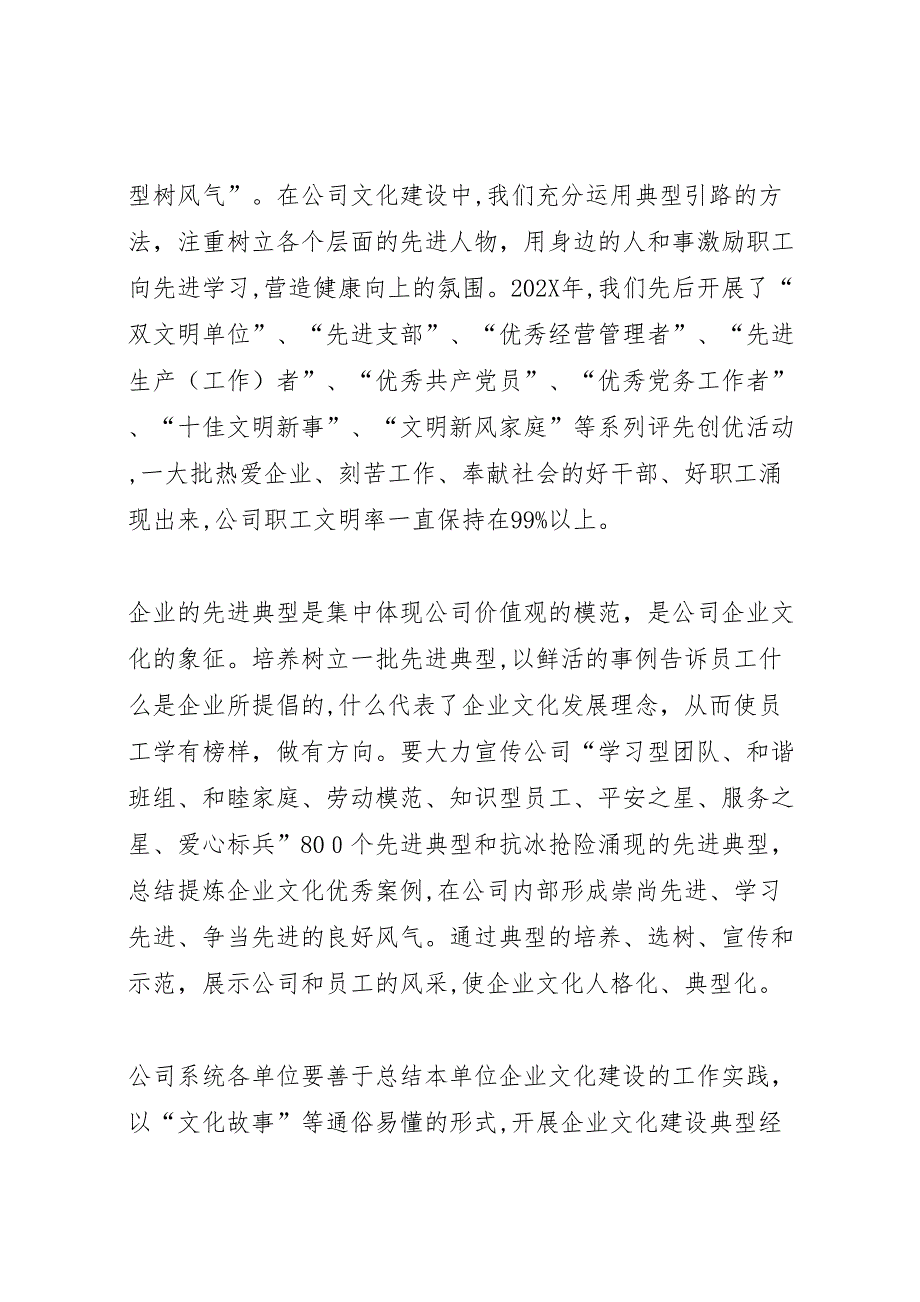 型树风气”。在公司文化建设中,我们充分运用典型引路的方
法，注重树立各个层面的先进人物，用身边的人和事激励职工
向先进学习,营造健康向上的氛围。202X年,我们先后开展了“
双文明单位”、“先进支部”、“优秀经营管理者”、“先进
生产（工作）者”、“优秀共产党员”、“优秀党务工作者”
、“十佳文明新事”、“文明新风家庭”等系列评先创优活动
,一大批热爱企业、刻苦工作、奉献社会的好干部、好职工涌
现出来,公司职工文明率一直保持在99%以上。
企业的先进典型是集中体现公司价值观的模范，是公司企业文
化的象征。培养树立一批先进典型,以鲜活的事例告诉员工什
么是企业所提倡的,什么代表了企业文化发展理念，从而使员
工学有榜样，做有方向。要大力宣传公司“学习型团队、和谐
班组、和睦家庭、劳动模范、知识型员工、平安之星、服务之
星、爱心标兵”80 0 个先进典型和抗冰抢险涌现的先进典型，
总结提炼企业文化优秀案例,在公司内部形成崇尚先进、学习
先进、争当先进的良好风气。通过典型的培养、选树、宣传和
示范，展示公司和员工的风采,使企业文化人格化、典型化。
公司系统各单位要善于总结本单位企业文化建设的工作实践，
以“文化故事”等通俗易懂的形式,开展企业文化建设典型经